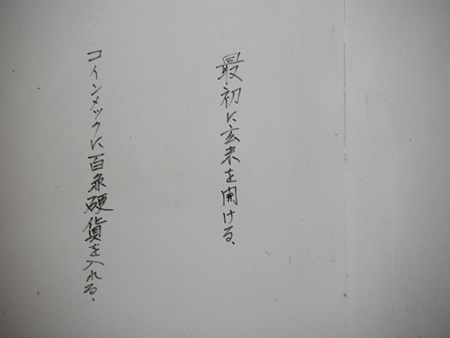 最初に玄米を開ける.
コインメックに百硬貨を入れる.